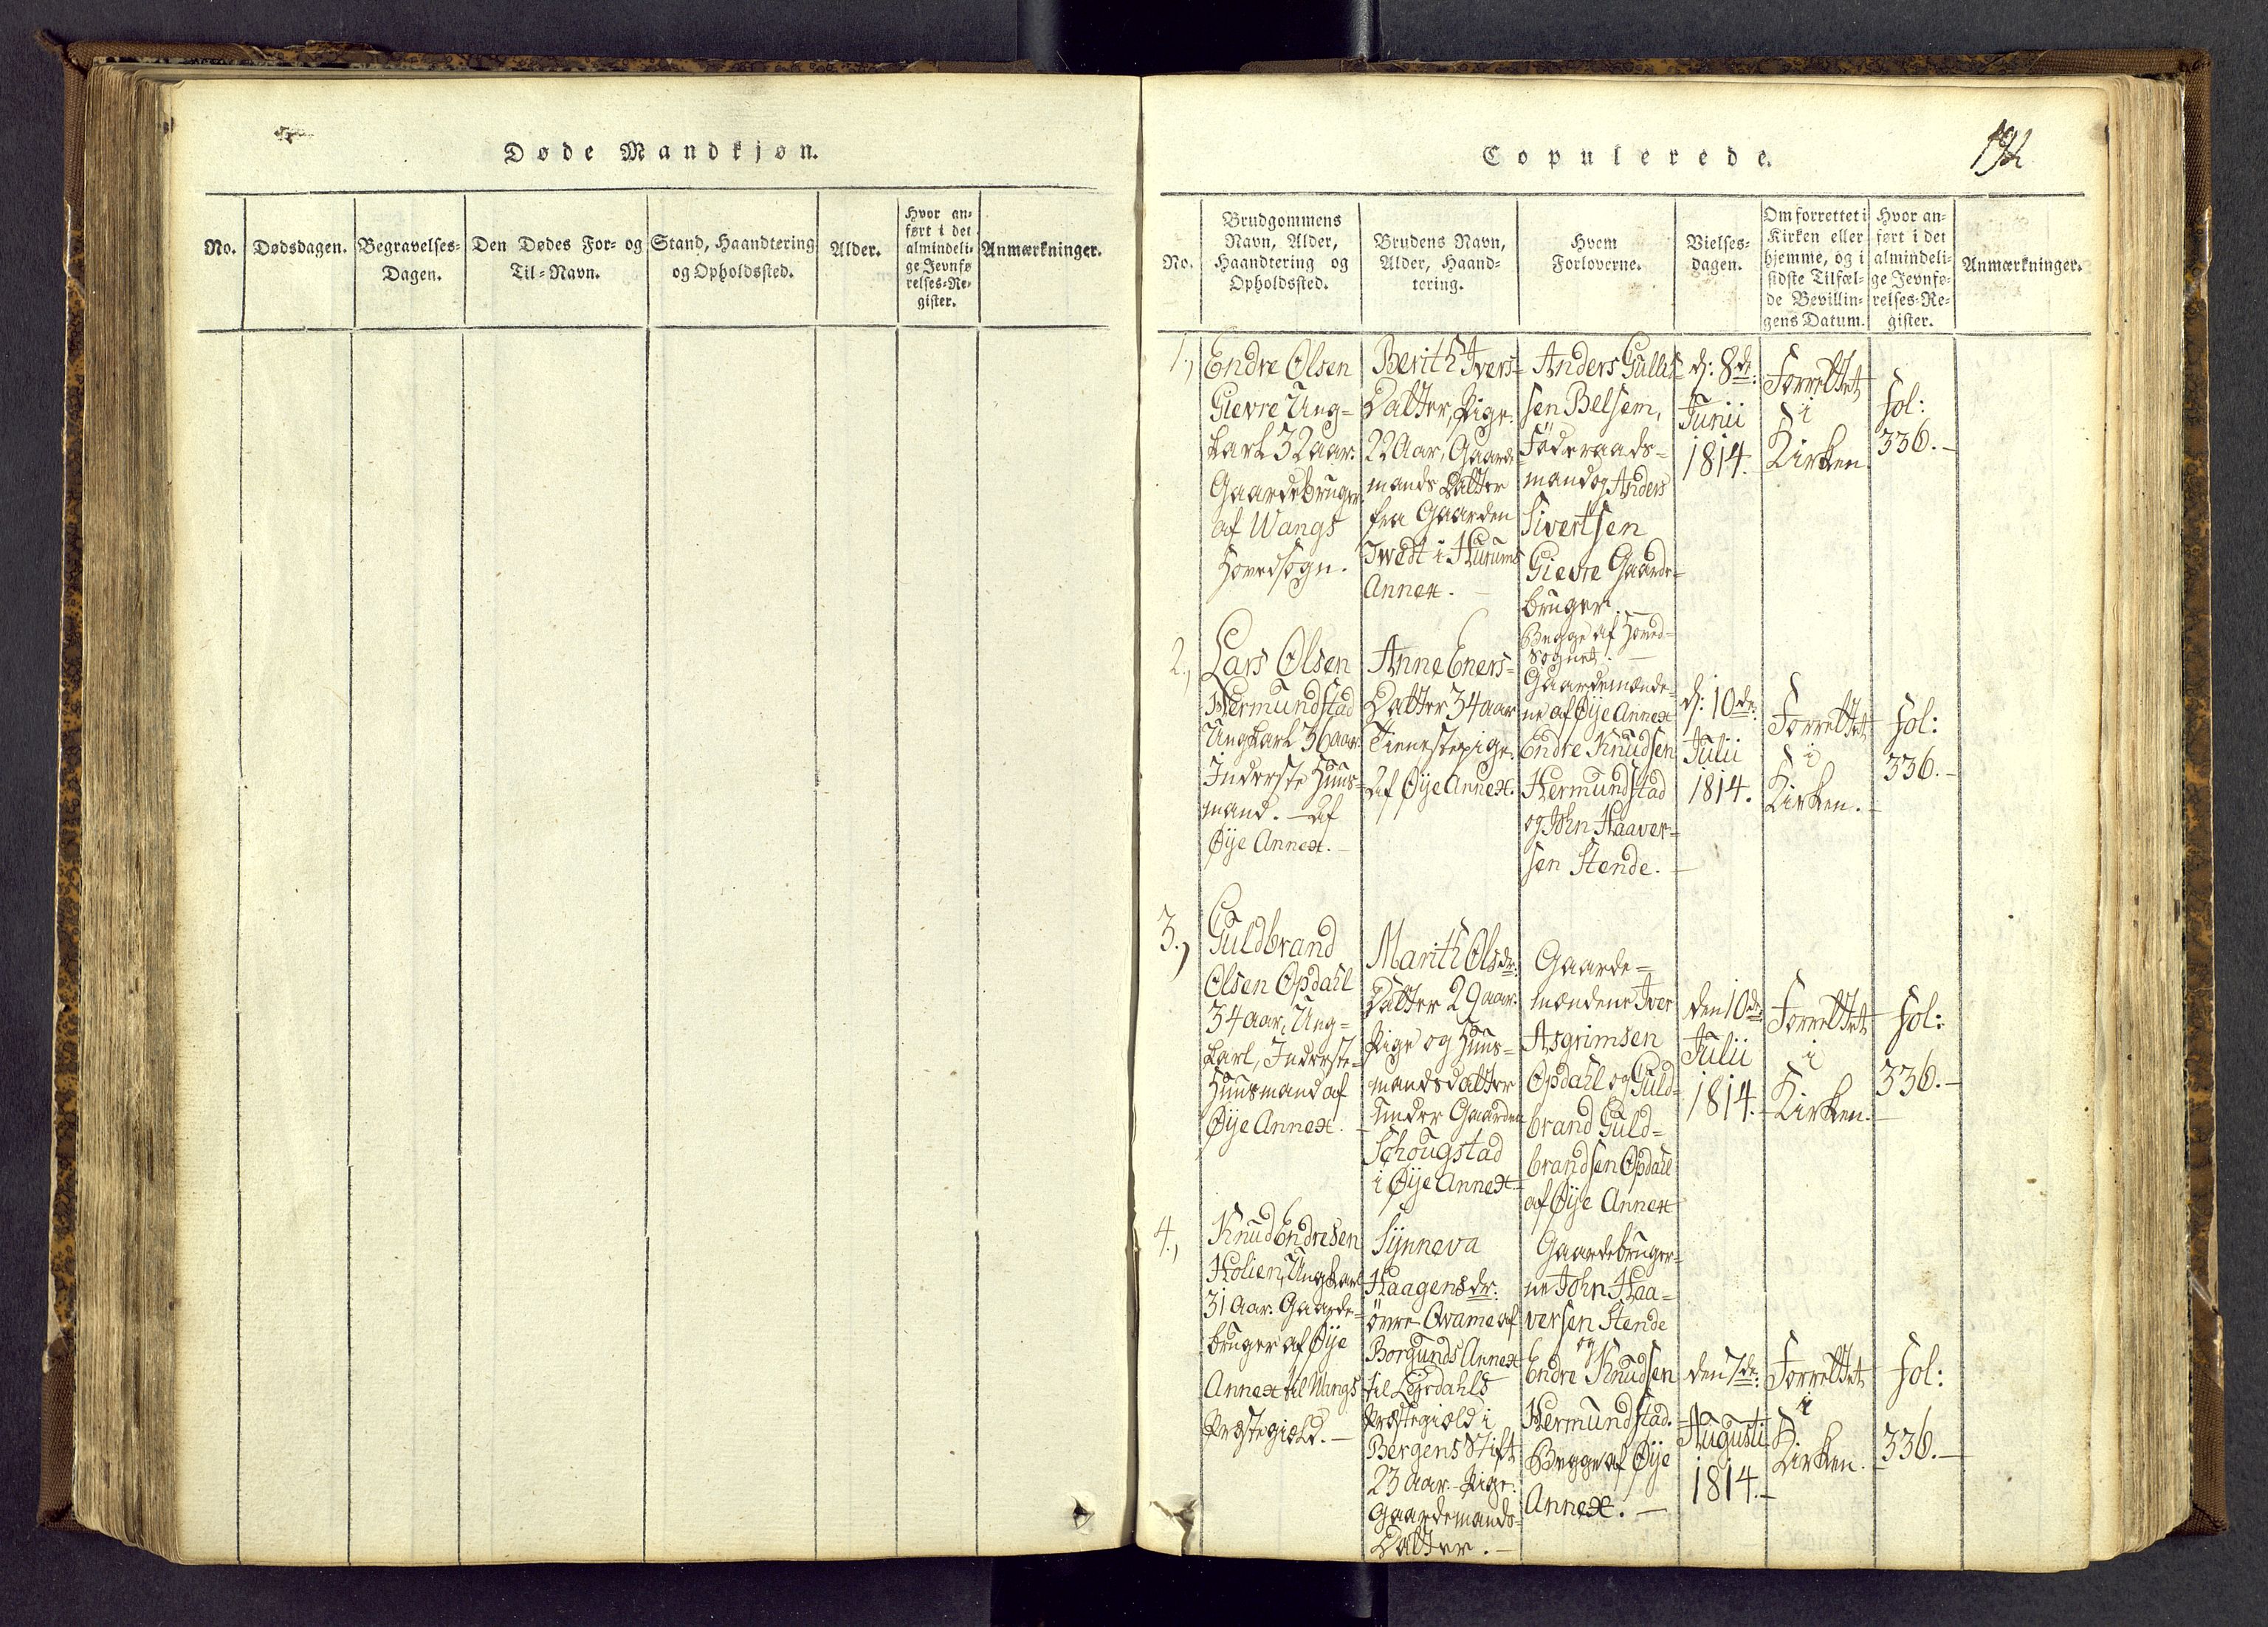 Døde Mandkjøn.
No.
Dødsdagen.
Begravelses-
Dagen.
Den Dødes For- og
Til-Navn.
Stand, Haandtering
og Opholdssted.
Alder.
Hvor an-
ført i det
almindeli-
ge Jevnfø
relses-Re-
gister.
Anmærkninger.
Copulerede.
No.
Brudgommens
Navn, Alder,
Haandtering og
Opholdssted.
Brudens Navn,
Alder, Haand-
tering.
Hvem
Forloverne.
Vielses-
dagen.
Om forrettet i
Kirken eller
hjemme, og i
sidste Tilfæl-
de Bevillin-
gens Datum.
Hvor an-
ført i det
almindeli-
ge Jevnfø-
relses-Re-
gister.
Anmærkninger.
1.,
Endre Olsen
Gievre Ung-
karl 32 aar.
Gaardebruger
af Wangs
Hovedsogn.
Berith Ivers-
Datter, Pige
22 Aar, Gaarde-
mands Datter
fra Gaarden
Twedt i Hurums
Annex. -
Anders Gulles-
sen Belsem,
Föderaads-
mand og Anders
Sivertsen
Gievre Gaarde-
bruger. -
Begge af Hoved-
Sognet. -
d: 8de
Junii
1814.
Forrettet
i
Kirken.
fol:
336. -
2.,
Lars Olsen
Hermundstad
Ungkarl 36 aar.
Inderste Huus-
mand. - Af
Øije Annex. -
Anne Eners-
Datter 34 aar
Tienestepige.
Af Øije Annex.
Gaardemænde-
ne af Øije Annex
Endre Knudsen
Hermundstad
og John Haaver-
sen Stende. -
d: 10de
Julii
1814.
Forrettet
i
Kirken. -
fol:
336. -
3.,
Guldbrand
Olsen Opdahl
34 aar, Ung-
karl, Inderste-
Huusmand af
Øije Annex. -
Marith Olsdr:
Datter 29 aar.
Pige og Huus-
mandsdatter
under Gaarden
Schougstad
i Øije Annex -
Gaarde-
mændene Iver
Asgrimsen
Opdahl og Guld-
brand Guld-
brandsen Opdahl
af Øije Annex
den 10de
Julii
1814. -
Forrettet
i
Kirken. -
fol:
336. -
4.,
Knud Endresen
Holien, Ungkarl
31 Aar. Gaarde-
bruger af Øije
Annex til Wangs
Præstegield. -
Synneva
Haagensdr:
övre Qvame af
Borgunds Annex
til Leirdahls
Præstegield i
Bergens Stift
23 Aar - Pige.
Gaardemands-
Datter. -
Gaardebruger-
ne John Haa-
versen Stende
og
Endre Knudsen
Hermundstad.
Begge af Øije
Annex. -
den 7de
Augusti
1814. -
Forrettet
i
Kirken.
fol:
336. -